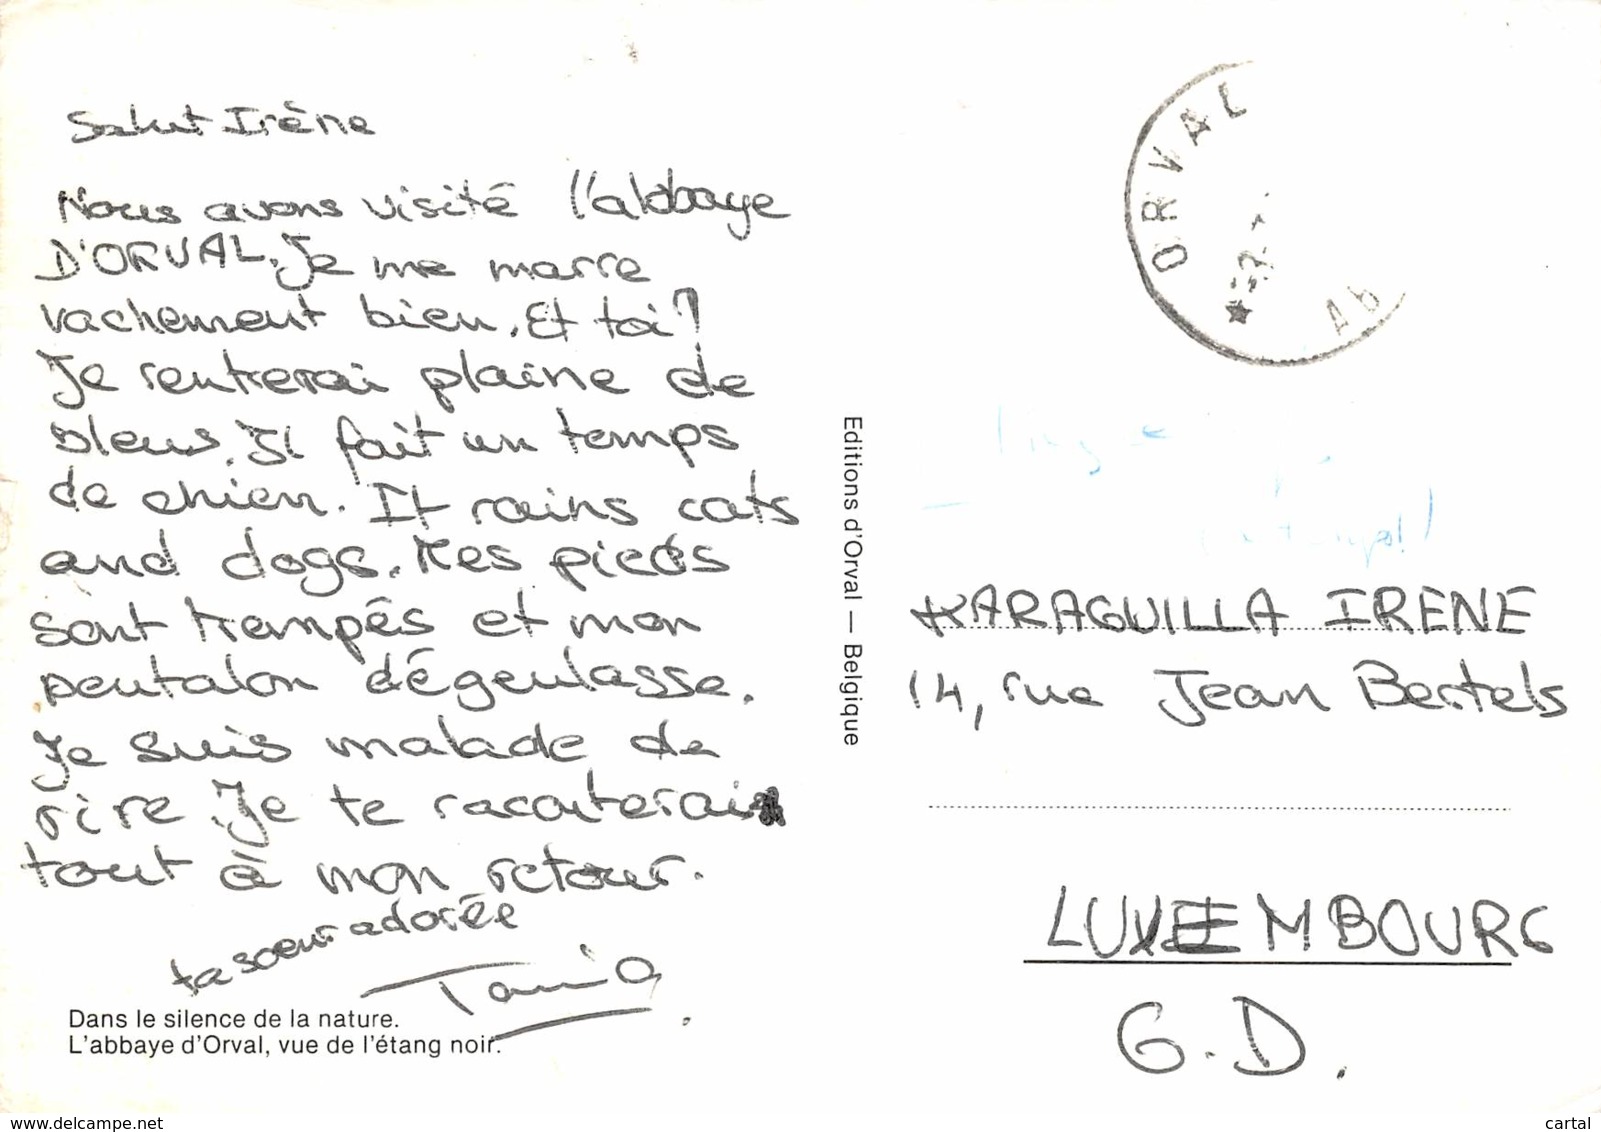 Salut Irène
Nous avons visité l'abbaye
D'ORVAL. Je me marre
vachement bien. Et toi?
Je rentrerai plaine de
bleus. Il fait un temps
de chien. It rains cats
and dogs. Mes pieds
sont trempés et mon
pentalon dégeulasse.
Je suis malade de
rire. Je te raconterai
tout à mon retour.
ta soeur adorée
Tania
Dans le silence de la nature.
L'abbaye d'Orval, vue de l'étang noir.
Editions d'Orval — Belgique
ORVAL
Ab
KARAGUILLA IRENE
14, rue Jean Bertels
LUXEMBOURG
G.D.
www.delcampe.net
cartal